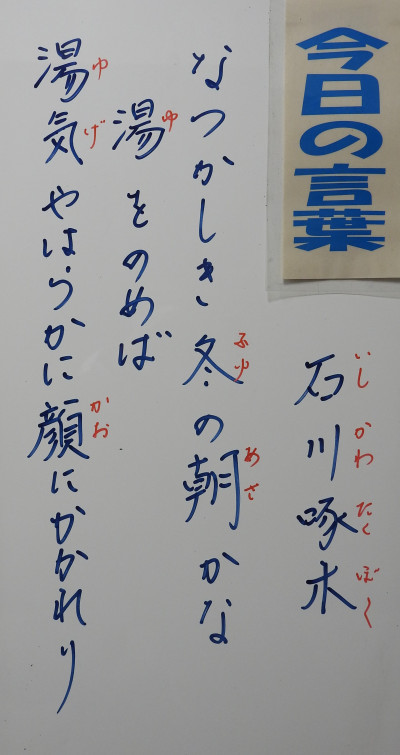 今日の言葉
石川啄木
いしかわたくぼく
なつかしき冬の朝かな
ふゆ
あさ
湯をのめば
ゆ
湯気やはらかに顔にかかれり
ゆげ
かお